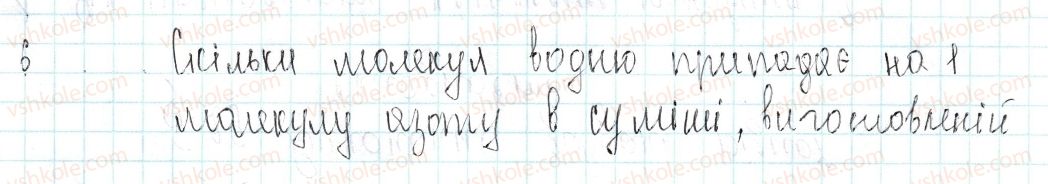 6 Скільки молекул водню припадає на 1
молекулу азоту в суміші, виготовленій